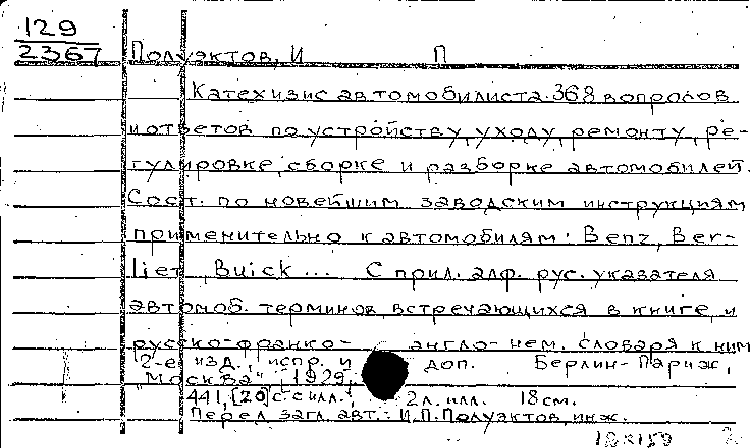 129
2367
Полуэктов, И П
Катехизис автомобилиста. 368 вопросов
и ответов по устройству, уходу, ремонту, ре-
гулировке, сборке и разборке автомобилей.
Сост. по новейшим заводским инструкциям
применительно к автомобилям: Benz, Ber-
liet, Buick... С прил. алф. рус. указателя
автомоб. терминов, встречающихся в книге, и
русско-франко- англо-нем. словаря к ним
2-е изд., испр. и доп. Берлин-Париж,
"Москва", 1929,
441, [20] с. с илл., 2 л. илл. 18 см.
Перед загл. авт.: И.П. Полуэктов, инж.